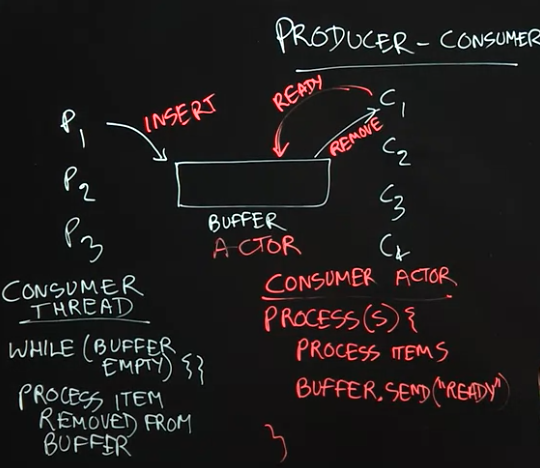 PRODUCER - CONSUMER
READY
INSERT
REMOVE
P1
P2
P3
C1
C2
C3
C4
BUFFER
ACTOR
CONSUMER
THREAD
WHILE (BUFFER
EMPTY) {}
PROCESS ITEM
REMOVED FROM
BUFFER
CONSUMER ACTOR
PROCESS(S) {
PROCESS ITEMS
BUFFER.SEND("READY")
}